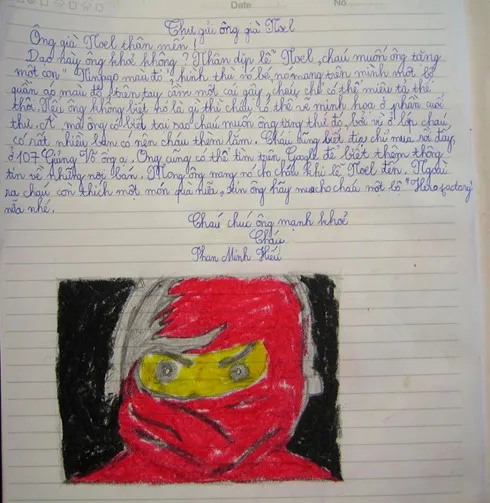 Date
No.
Thư gửi ông già Noel
Ông già Noel thân mến!
Dạo này ông khỏe không? Nhân dịp lễ Noel, cháu muốn ông tặng
một con "Ninjago màu đỏ", hình thù nó bé, nó mang trên mình một bộ
quần áo màu đỏ, trên tay cầm một cái gậy, cháu chỉ có thể miêu tả thế
thôi. Nếu ông không biết nó là gì thì cháu có thể vẽ minh họa ở phần cuối
thư. À, mà ông có biết tại sao cháu muốn ông tặng thứ đó, bởi vì ở lớp cháu
có rất nhiều bạn có nên cháu thèm lắm. Cháu cũng biết địa chỉ mua rồi đấy,
ở 107 Giảng Võ ông ạ. Ông cũng có thể tìm trên Google để biết thêm thông
tin về những nơi bán. Mong ông mang nó cho cháu khi lễ Noel đến. Ngoài
ra cháu còn thích một món quà nữa, xin ông hãy mua cho cháu một lô "Hero factory"
nữa nhé.
Cháu chúc ông mạnh khỏe
Cháu
Phan Minh Hiếu